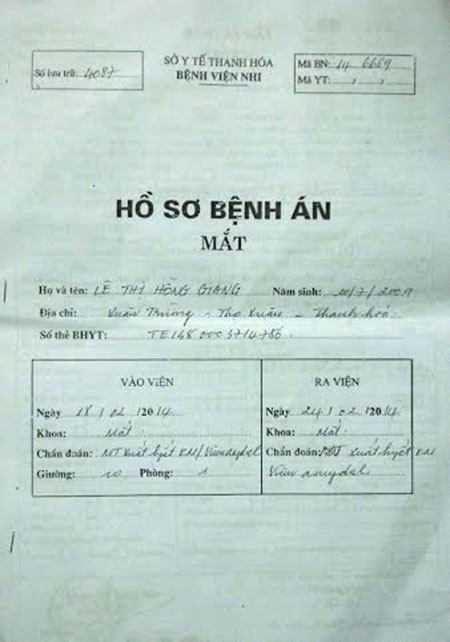 SỞ Y TẾ THANH HÓA
BỆNH VIỆN NHI
Số lưu trữ: 4087
Mã BN: 14 6669
Mã YT: / /
HỒ SƠ BỆNH ÁN
MẮT
Họ và tên: LÊ THỊ HỒNG GIANG Năm sinh: 20/7/2009
Địa chỉ: Xuân Trường - Thọ Xuân - Thanh hoá
Số thẻ BHYT: TE1480003714786
VÀO VIỆN
Ngày 18 / 02 /2014
Khoa: Mắt
Chẩn đoán: MT Xuất huyết KM/ Viêm amydal
Giường: 10 Phòng: 1
RA VIỆN
Ngày 24 / 02 /2014
Khoa: Mắt
Chẩn đoán: MT Xuất huyết KM
Viêm amydal